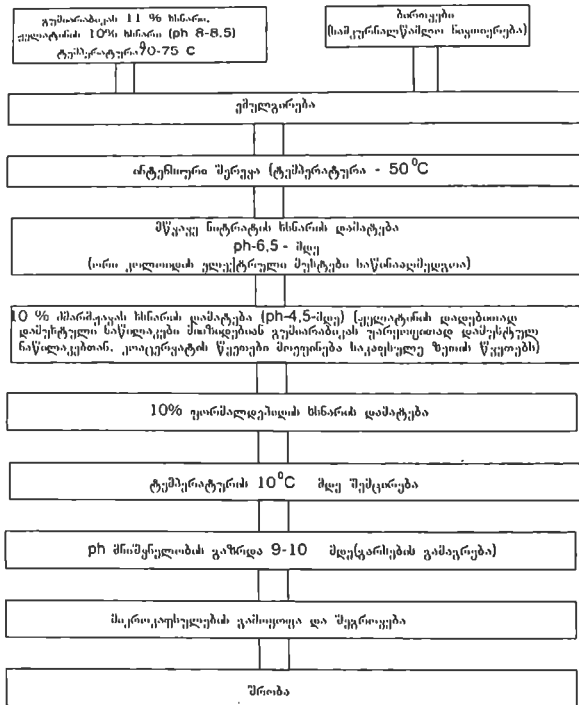 გუმიარაბიკას 11 % ხსნარი,
ჟელატინის 10% ხსნარი (ph 8-8,5)
ტემპერატურა 70-75 C
ბირთვები
(სამკურნალწამლო ნივთიერება)
ემულგირება
ინტენსიური მორევა (ტემპერატურა - 50⁰C
მწვავე ნიტრატის ხსნარის დამატება
ph-6,5 - მდე
(ორი კოლოიდის ელექტრული მუხტები საწინააღმდეგოა)
10 % ძმარმჟავას ხსნარის დამატება (ph-4,5-მდე) (ჟელატინის დადებითად
დამუხტული ნაწილაკები მიიზიდებიან გუმიარაბიკას უარყოფითად დამუხტულ
ნაწილაკებთან. კოაცერვატის წვეთები მოეფინება საკაფსულე ზეთის წვეთებს)
10% ფორმალდეჰიდის ხსნარის დამატება
ტემპერატურის 10⁰C მდე შემცირება
ph მნიშვნელობის გაზრდა 9-10 მდე(გარსების გამაგრება)
მიკროკაფსულების გამოყოფა და შეგროვება
შრობა